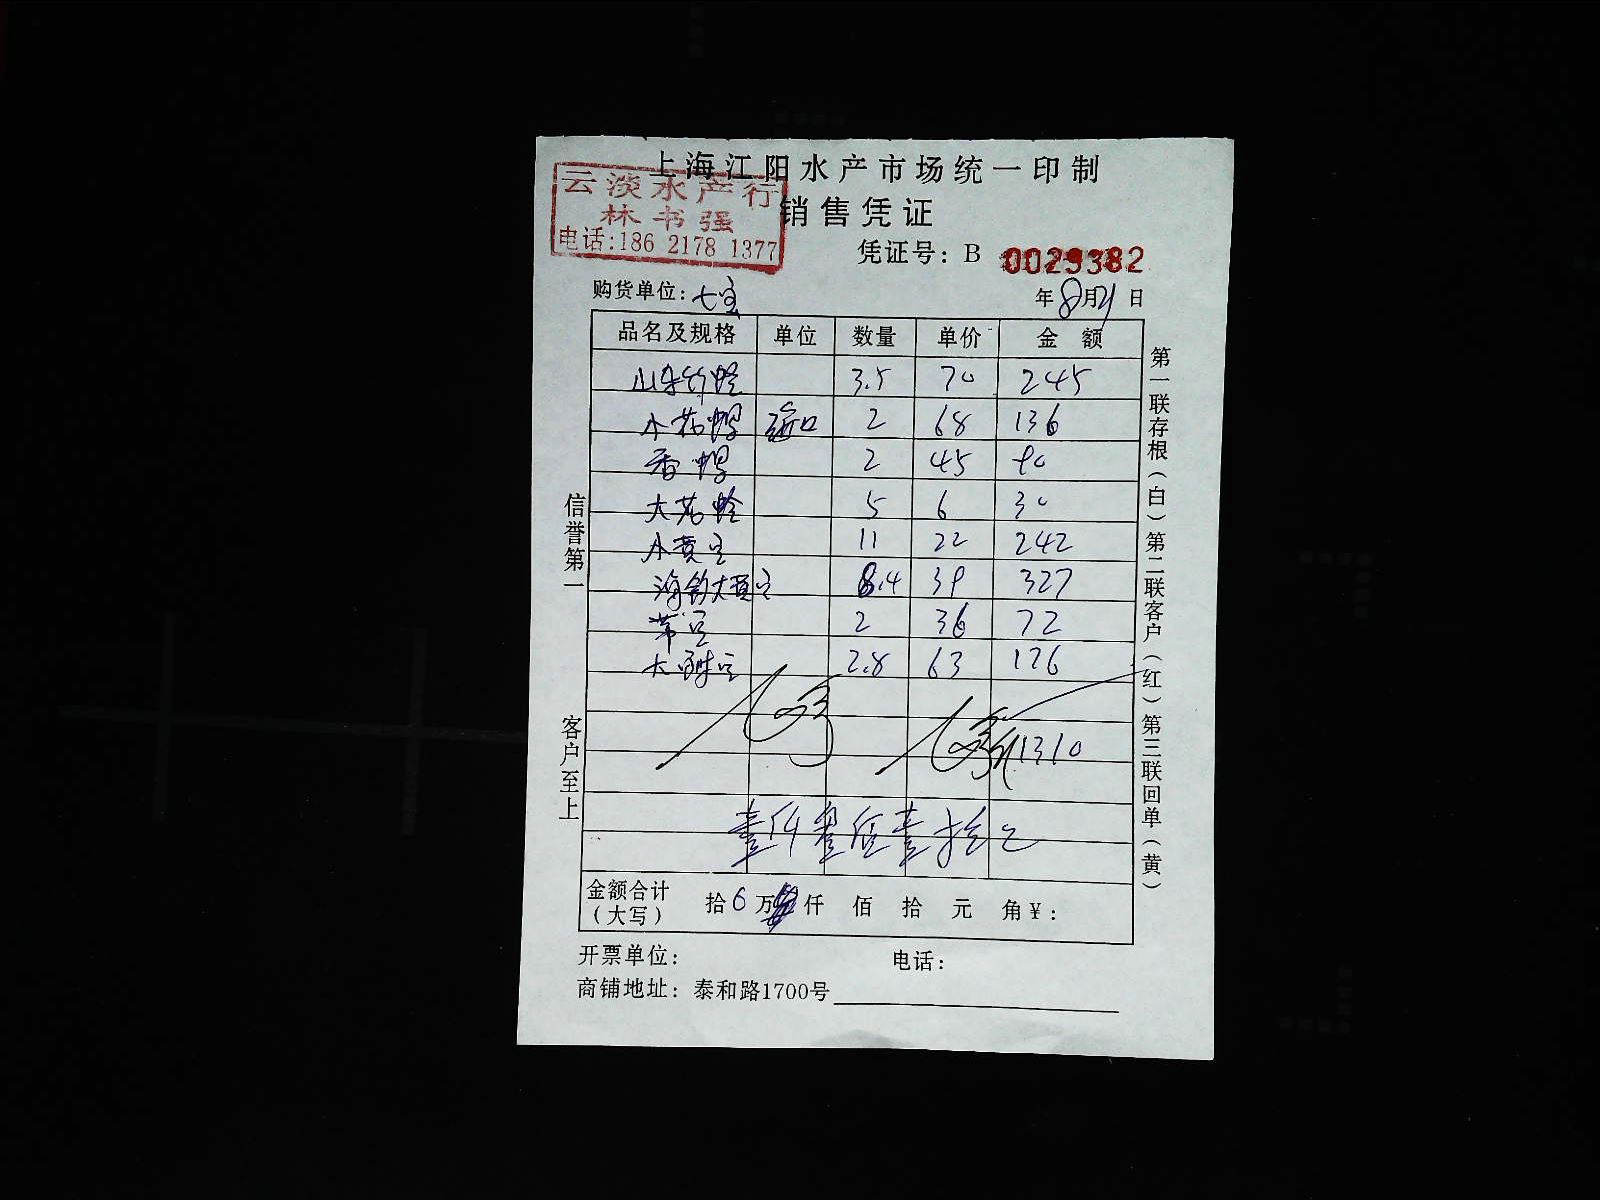 上海江阳水产市场统一印制
云淡水产行
林书强
电话:186 2178 1377
销售凭证
凭证号: B 0029382
购货单位: 七宝
年8月21日
品名及规格 单位 数量 单价 金 额
山东竹蛏 3.5 70 245
小花螺 2 68 136
香螺 2 45 90
大花蛤 5 6 30
小黄鱼 11 22 242
海钓大黄鱼 8.4 39 327
带鱼 2 36 72
大 鱼 2.8 63 176
1310
壹仟叁佰壹拾元
金额合计
(大写)
拾6万 仟 佰 拾 元 角¥:
开票单位: 电话:
商铺地址: 泰和路1700号
信誉第一 客户至上
第一联存根(白)第二联客户(红)第三联回单(黄)